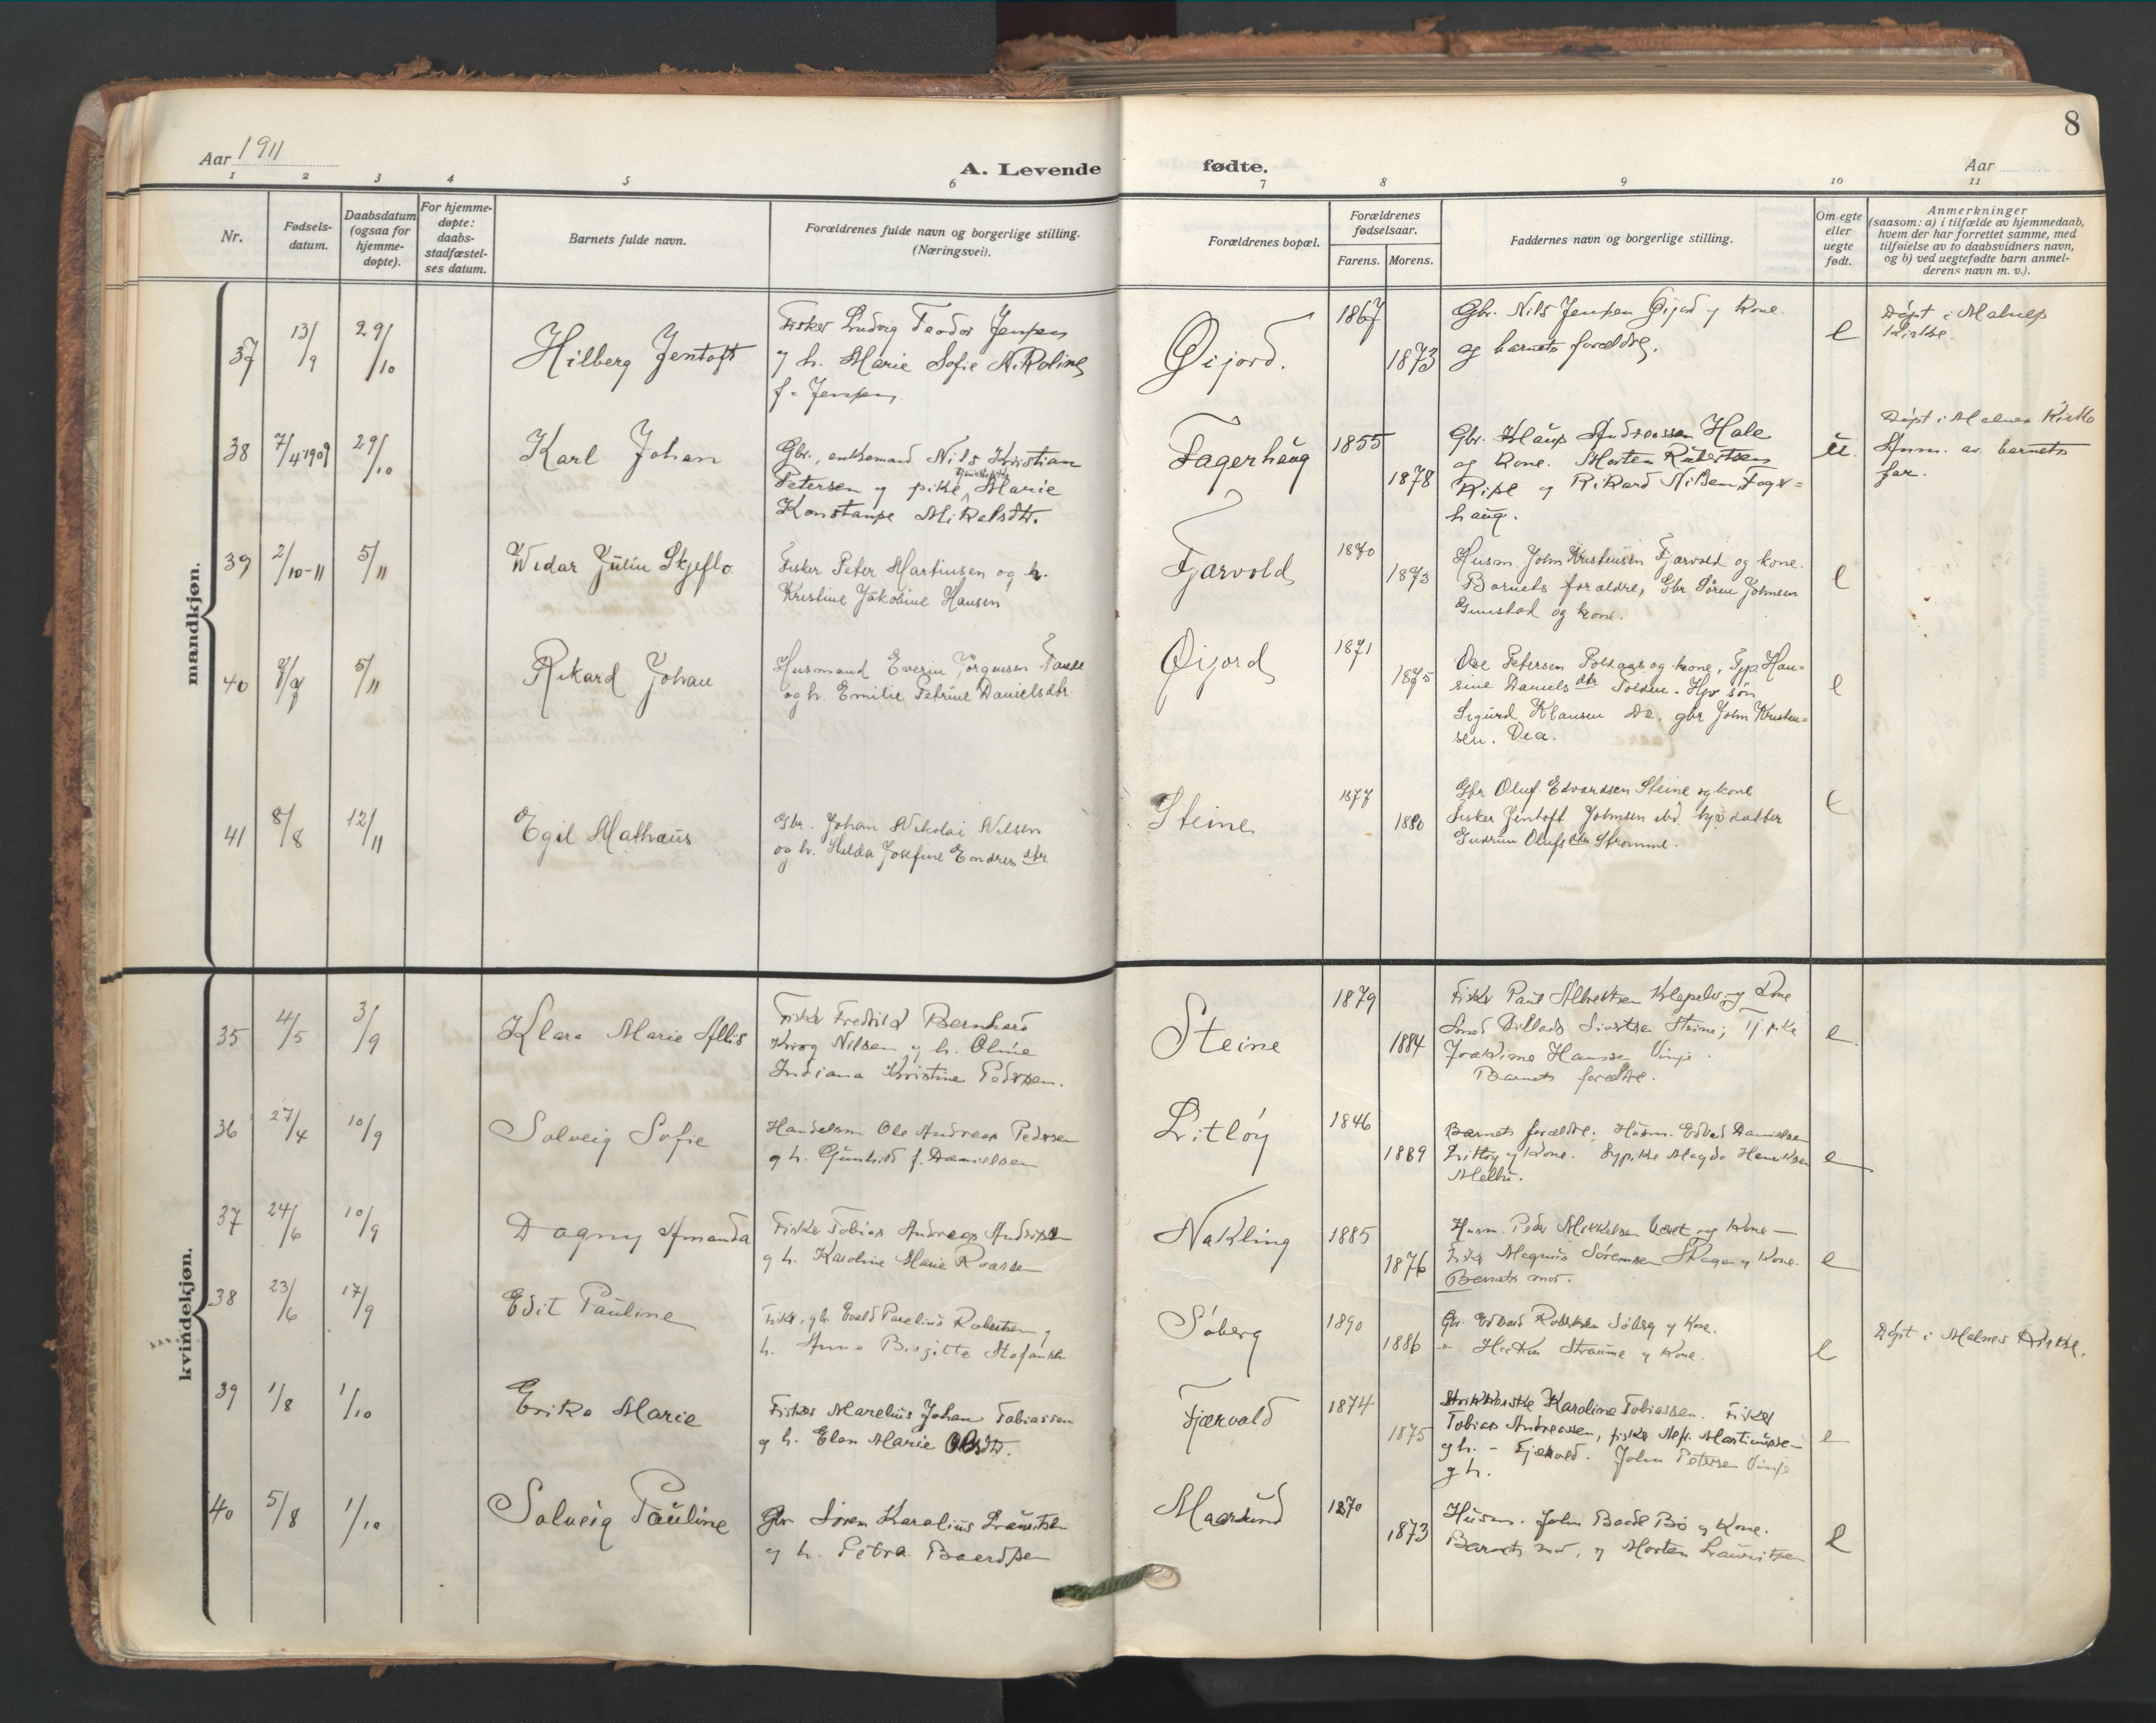 8
Aar 1911
A. Levende fødte.
Aar
1 2 3 4 5 6 7 8 9 10 11
Nr.
Fødsels-
datum.
Daabsdatum
(ogsaa for
hjemme-
døpte).
For hjemme-
døpte:
daabs-
stadfæstel-
ses datum.
Barnets fulde navn.
Forældrenes fulde navn og borgerlige stilling.
(Næringsvei).
Forældrenes bopæl.
Forældrenes
fødselsaar.
Farens. Morens.
Faddernes navn og borgerlige stilling.
Om egte
eller
uegte
født.
Anmerkninger
(saasom: a) i tilfælde av hjemmedaab,
hvem der har forrettet samme, med
tilføielse av to daabsvidners navn,
og b) ved uegtefødte barn anmel-
derens navn m. v.).
mandkjøn.
37 13/9 29/10 Hilberg Jentoft
Fisker Ludvig Teodor Jensen
g h. Marie Sofie Nikoline
f. Jensen
Øijord. 1867 1873
Gbr. Nils Jensen Øijord g Kone.
og barnets forældre.
e
Døpt i Malnes
Kirke.
38 7/4 1909 29/10 Karl Johan
Gbr., enkemand Nils Kristian
Petersen g pike, Marie
Konstanse Mikalsdtr.
Fagerhaug 1855 1878
Gbr. Klaus Andreassen Hale
og Kone. Morten Robertsen
og Rikard Nilsen, Fager=
haug.
u.
Døpt i Malnes Kirke
Anm. av barnets
far.
39 2/10-11 5/11 Widar Julin Skjeflo.
Fisker Peter Martinsen og h.
Kristine Jakobine Hansen
Fjærvold 1870 1873
Husm. John Kristensen Fjærvold og kone.
Barnets forældre, Gbr Sören Johnsen
Guustad og kone.
e
40 9/9 5/11 Rikard Johan
Husmand Everin Jörgensen
og h. Emilie Petrine Danielsdtr.
Øijord 1871 1875
Ove Petersen og kone, Typ. Han=
sine Danielsdtr. Hjv sön
Sigurd Klausen Do. gbr John Kristen=
sen. Vea.
e
41 8/8 12/11 Egil Mathæus
Gbr. Johan Nikolai Nilsen
og h. Hilda Josefine Endresdtr
Steine 1877 1880
Gbr Oluf Edvardsen Steine og kone
Fisker Jentoft Johnsen ibd. hjv datter
Gudrun Olufsdtr Strømme.
e
kvindekjøn.
35 4/5 3/9 Klara Marie Allis
Fisker Fredrik Bernhard
Krog Nilsen g h. Oline
Indiana Kristine Pedersen.
Steine 1879 1884
Fisker Paul Albrektsen g Kone
Smed Sivertsen Steine; Tj. pike
Joakime Hanssen Vinje.
Barnets forældre.
e.
36 27/4 10/9 Solveig Sofie
Handelsm Ole Andreas Pedersen
g h. Gunhild f. Danielsen
Litløy 1846 1889
Barnets forældre; Husm. Edvard Danielsen
Litløy g Kone. Sypike Magda Henriksen
Melbu.
e
37 24/6 10/9 Dagny Amanda
Fisker Tobias Andreas Andersen
g h. Karoline Marie Roassen
Nakling 1885 1876
Husm. Peder Mikkelsen g Kone —
Fisker Magnus Sörensen Skagen g Kone.
Barnets mor.
e
38 23/6 17/9 Edit Pauline
Fisker, gb. Evald Parelius Robertsen g
h. Anna Birgitte Stefansdtr.
Söberg 1890 1886
Gbr. Edvard Robertsen Söberg g Kone.
" Straume g Kone.
e
Døpt i Malnes Kirke.
39 1/8 1/10 Erika Marie
Fisker Marelius Johan Tobiassen
g h. Elen Marie Olsdtr.
Fjærvold 1874 1875
Karoline Tobiassen. Fisker
Tobias Andreassen, fisker Alf. Martinussen
g h. – Fjærvold. John Petersen Vinje
g h.
e
40 5/8 1/10 Solveig Pauline
Gbr Sören Karelius Lauritsen
g h. Petra Baardsen
Maarsund 1870 1873
Husm. John Baade Bö g Kone.
Barnets mor, g Morten Lauritsen
e